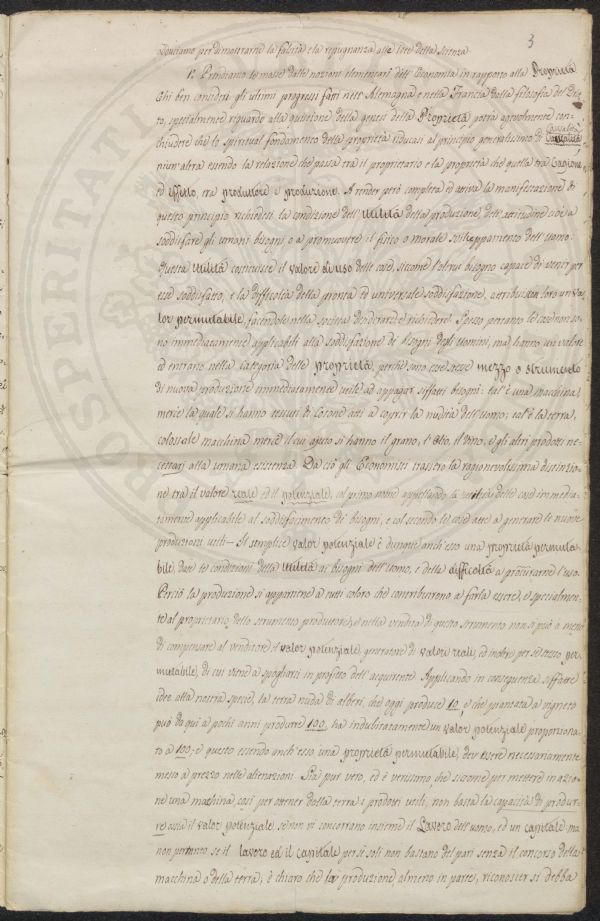 3
Dobbiamo per dimostrarne la falsità e la repugnanza alle idee della scienza
1.° Prendiamo le mosse dalle nozioni elementari dell'Economia in rapporto alla Proprietà
Chi ben consideri gli ultimi progressi fatti nell'Alemagna e nella Francia dalla filosofia del Drit-
to, specialmente riguardo alla quistione della genesi della Proprietà potrà agevolmente con-
chiudere che lo spiritual fondamento della proprietà riducasi al principio generalissimo di Causalità
niun'altra essendo la relazione che passa tra il proprietario e la proprietà che quella tra Cagione
ed effetto, tra produttore e produzione. A render però completa ed attiva la manifestazione di
questo principio richiedesi la condizione dell'utilità della produzione, dell'attitudine cioè a
soddisfare gli umani bisogni o a promuovere il fisico o morale sviluppamento dell'uomo.
Questa utilità costituisce il valore di uso delle cose, siccome l'altrui bisogno capace di esser per
esse soddisfatto, e la difficoltà della pronta ed universale soddisfazione, attribuiscon loro un va-
lor permutabile, facendole nella società desiderare e richiedere. Spesso pertanto le cose non so-
no immediatamente applicabili alla soddisfazione di bisogni degli uomini, ma hanno un valore
ed entrano nella categoria delle proprietà, perchè sono esse mezzo o strumento
di nuova produzione immediatamente utile ad appagar siffatti bisogni: tal'è una macchina,
mercè la quale si hanno tessuti di cotone atti a coprir la nudità dell'uomo; tal'è la terra,
colossale macchina mercè il cui ajuto si hanno il grano, l'olio, il vino, e gli altri prodotti ne-
cessari alla umana esistenza. Da ciò gli Economisti trassero la ragionevolissima distinzio-
ne tra il valore reale ed il potenziale, col primo nome appellando la utilità delle cose immedia-
tamente applicabile al soddisfacimento di bisogni, e col secondo le cose atte a generare le nuove
produzioni utili — Il semplice valor potenziale è dunque anch'esso una proprietà permuta-
bile, date le condizioni della utilità ai bisogni dell'uomo, e della difficoltà a procurarne l'uso.
Perciò la produzione si appartiene a tutti coloro che contribuirono a farla essere, e specialmen-
te al proprietario dello strumento produttore; e nella vendita di questo strumento non si può a meno
di compensare al venditore il valor potenziale, generatore di valore reale, ed inoltre per se stesso per-
mutabile, di cui viene a spogliarsi in profitto dell'acquirente. Applicando in conseguenza siffatte
idee alla nostra specie, la terra nuda di alberi, che oggi produce 10, e che piantata a vigneto
può da qui a pochi anni produrre 100, ha indubitatamente un valor potenziale proporziona-
to a 100; e questo essendo anch'esso una proprietà permutabile, dev'essere necessariamente
messo a prezzo nelle alienazioni. Sia pur vero, ed è verissimo, che siccome per mettere in azio-
ne una macchina, così per ottener dalla terra i prodotti utili, non basta la capacità di produr-
re ossia il valor potenziale se non vi concorrano insieme il Lavoro dell'uomo, ed un capitale; ma
non pertanto se il lavoro ed il capitale per se soli non bastano del pari senza il concorso della
macchina o della terra; è chiaro che la produzione almeno in parte, riconoscer si debba